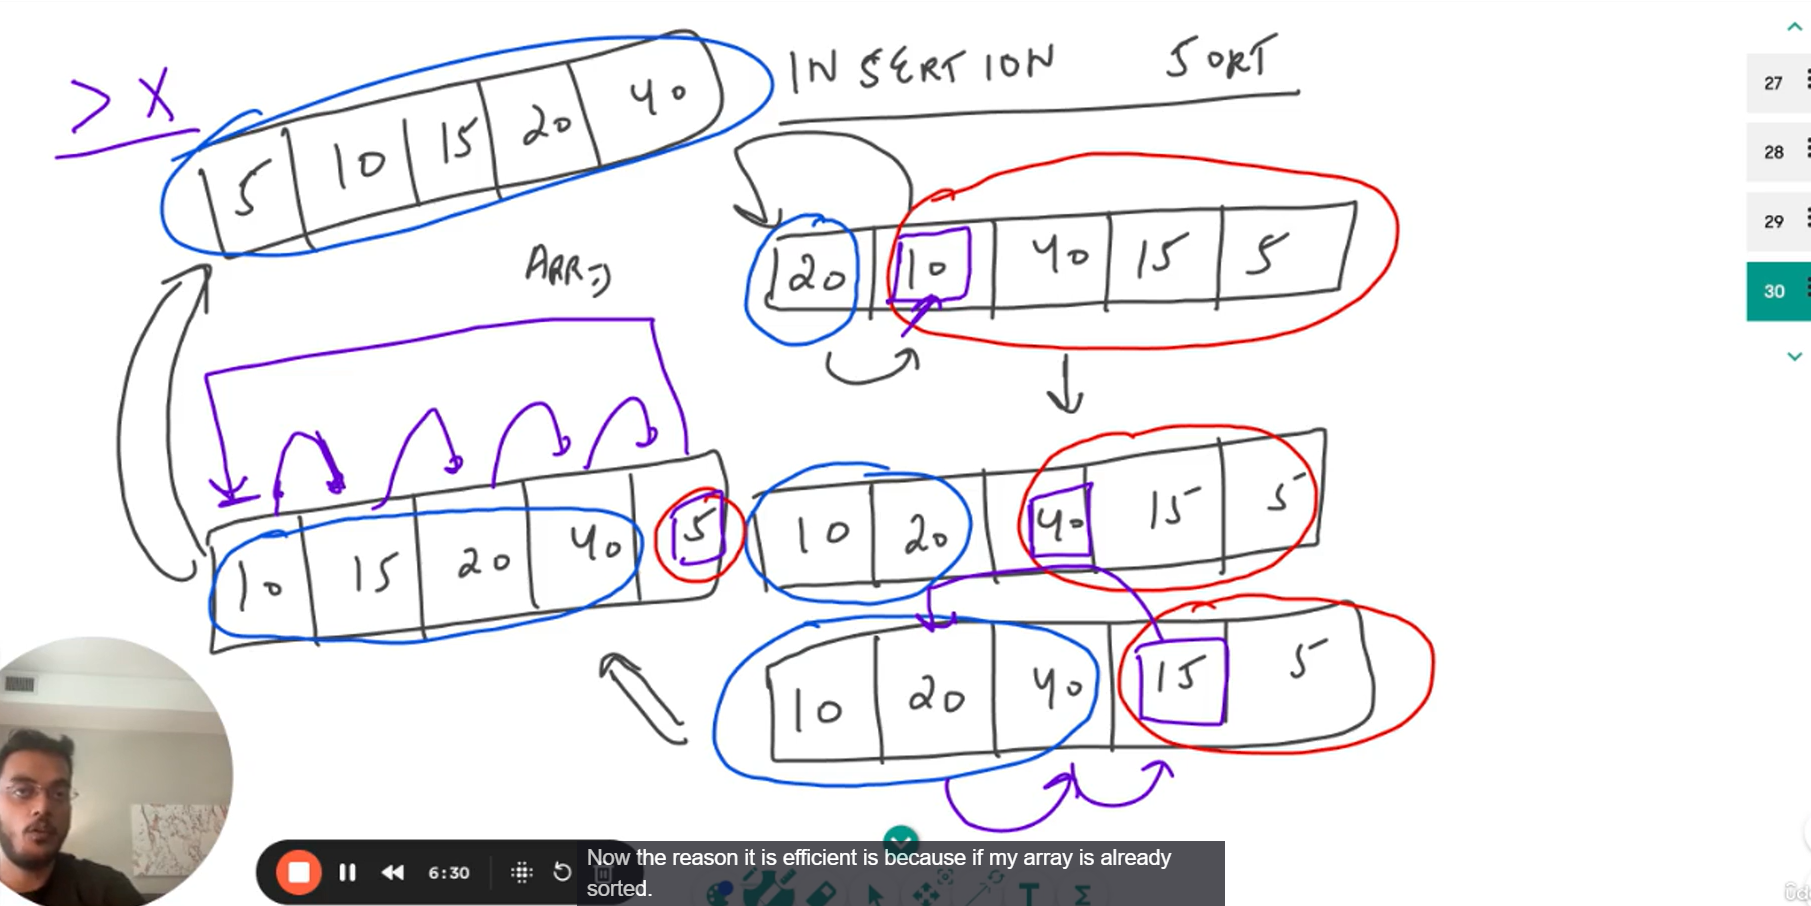 > X
INSERTION SORT
5 10 15 20 40
20 10 40 15 5
ARR
10 20 40 15 5
10 15 20 40 5
10 20 40 15 5
27
28
29
30
6:30
Now the reason it is efficient is because if my array is already
sorted.
T Σ